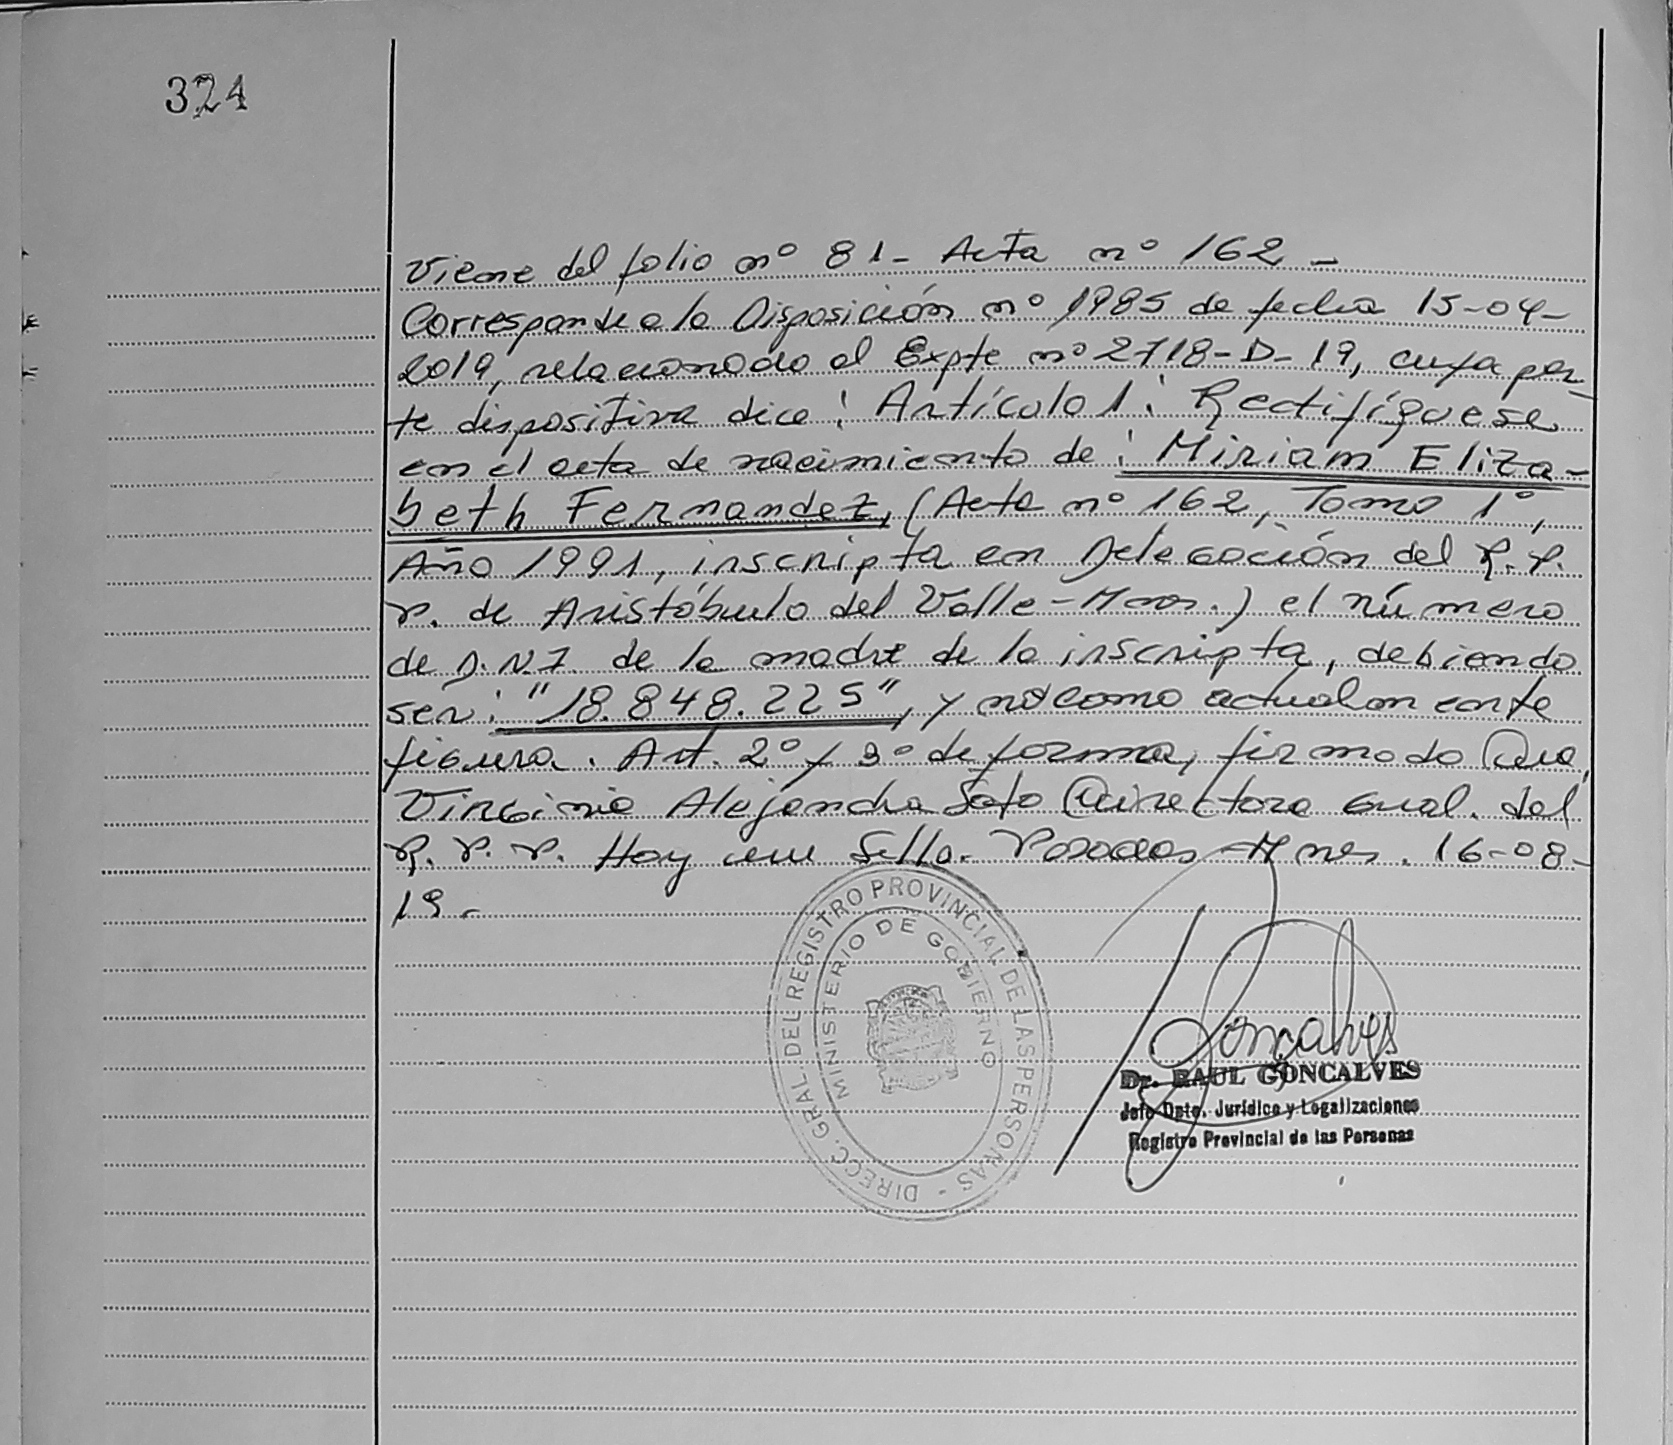 324
Viene del folio nº 81- Acta nº 162-
Corresponde a la Disposición nº 1985 de fecha 15-04-
2019, relacionado al Expte nº 2718-D-19, cuya par-
te dispositiva dice: Artículo 1: Rectifíquese
en el acta de nacimiento de: Miriam Eliza-
beth Fernandez, (Acta nº 162, Tomo 1º,
Año 1991, inscripta en Delegación del R.P.
P. de Aristóbulo del Valle-Mnes.) el número
de D.N.I. de la madre de la inscripta, debiendo
ser: "18.848.225", y no como actualmente
figura. Art. 2º y 3º de forma, firmado
Virginia Alejandra Soto Directora Gral. del
R.P.P. Hay un Sello. Posadas-Mnes. 16-08-
19-
DIRECC. GRAL. DEL REGISTRO PROVINCIAL DE LAS PERSONAS -
MINISTERIO DE GOBIERNO
Goncalves
Dr. RAUL GONCALVES
Jefe Dpto. Jurídico y Legalizaciones
Registro Provincial de las Personas